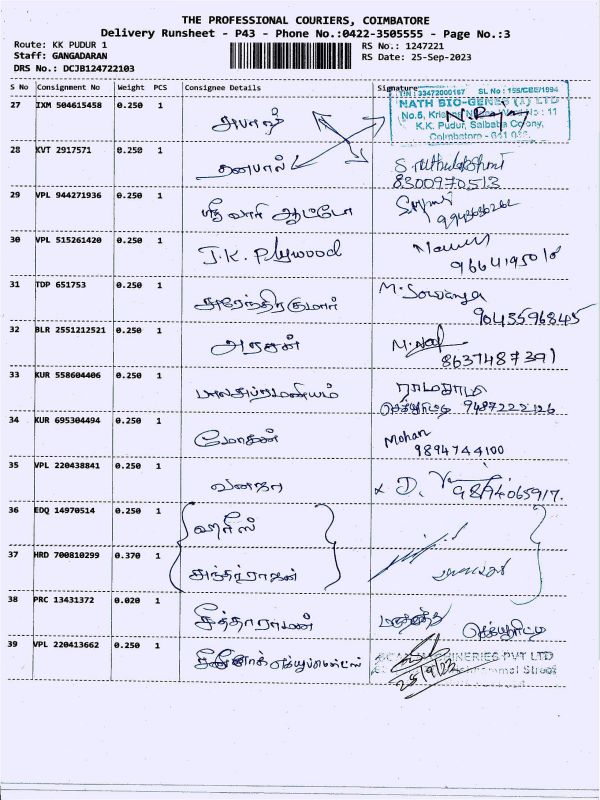 THE PROFESSIONAL COURIERS, COIMBATORE
Delivery Runsheet - P43 - Phone No.:0422-3505555 - Page No.:3
Route: KK PUDUR 1 RS No.: 1247221
Staff: GANGADARAN RS Date: 25-Sep-2023
DRS No.: DCJB124722103
S No Consignment No Weight PCS Consignee Details Signature
TIN : 33472000167 SL No : 155/CBE/1994
NATH BIO-GENES (I) LTD
27 IXM 504615458 0.250 1
K.K. Pudur, Saibaba Colony,
28 KVT 2917571 0.250 1 தனபால்
8300970513
29 VPL 944271936 0.250 1 ஸ்ரீ வாரி ஆட்டோ
30 VPL 515261420 0.250 1 J.K. Plywood
9664195018
31 TDP 651753 0.250 1 சுரேந்திரகுமார் M. Sowanya
9045596845
32 BLR 2551212521 0.250 1 அரசன்
8637487391
33 KUR 558604406 0.250 1 பாலசுப்ரமணியம்
செக்யூரிட்டி 9487222126
34 KUR 695304494 0.250 1 மோகன் Mohan
9894744100
35 VPL 220438841 0.250 1 வனஜா
9894065917.
36 EDQ 14970514 0.250 1 ஹரிஸ்
37 HRD 700810299 0.370 1 சுந்தர்ராஜன்
38 PRC 13431372 0.020 1 சீத்தாராமன் செக்யூரிட்டி
39 VPL 220413662 0.250 1
25/9/23